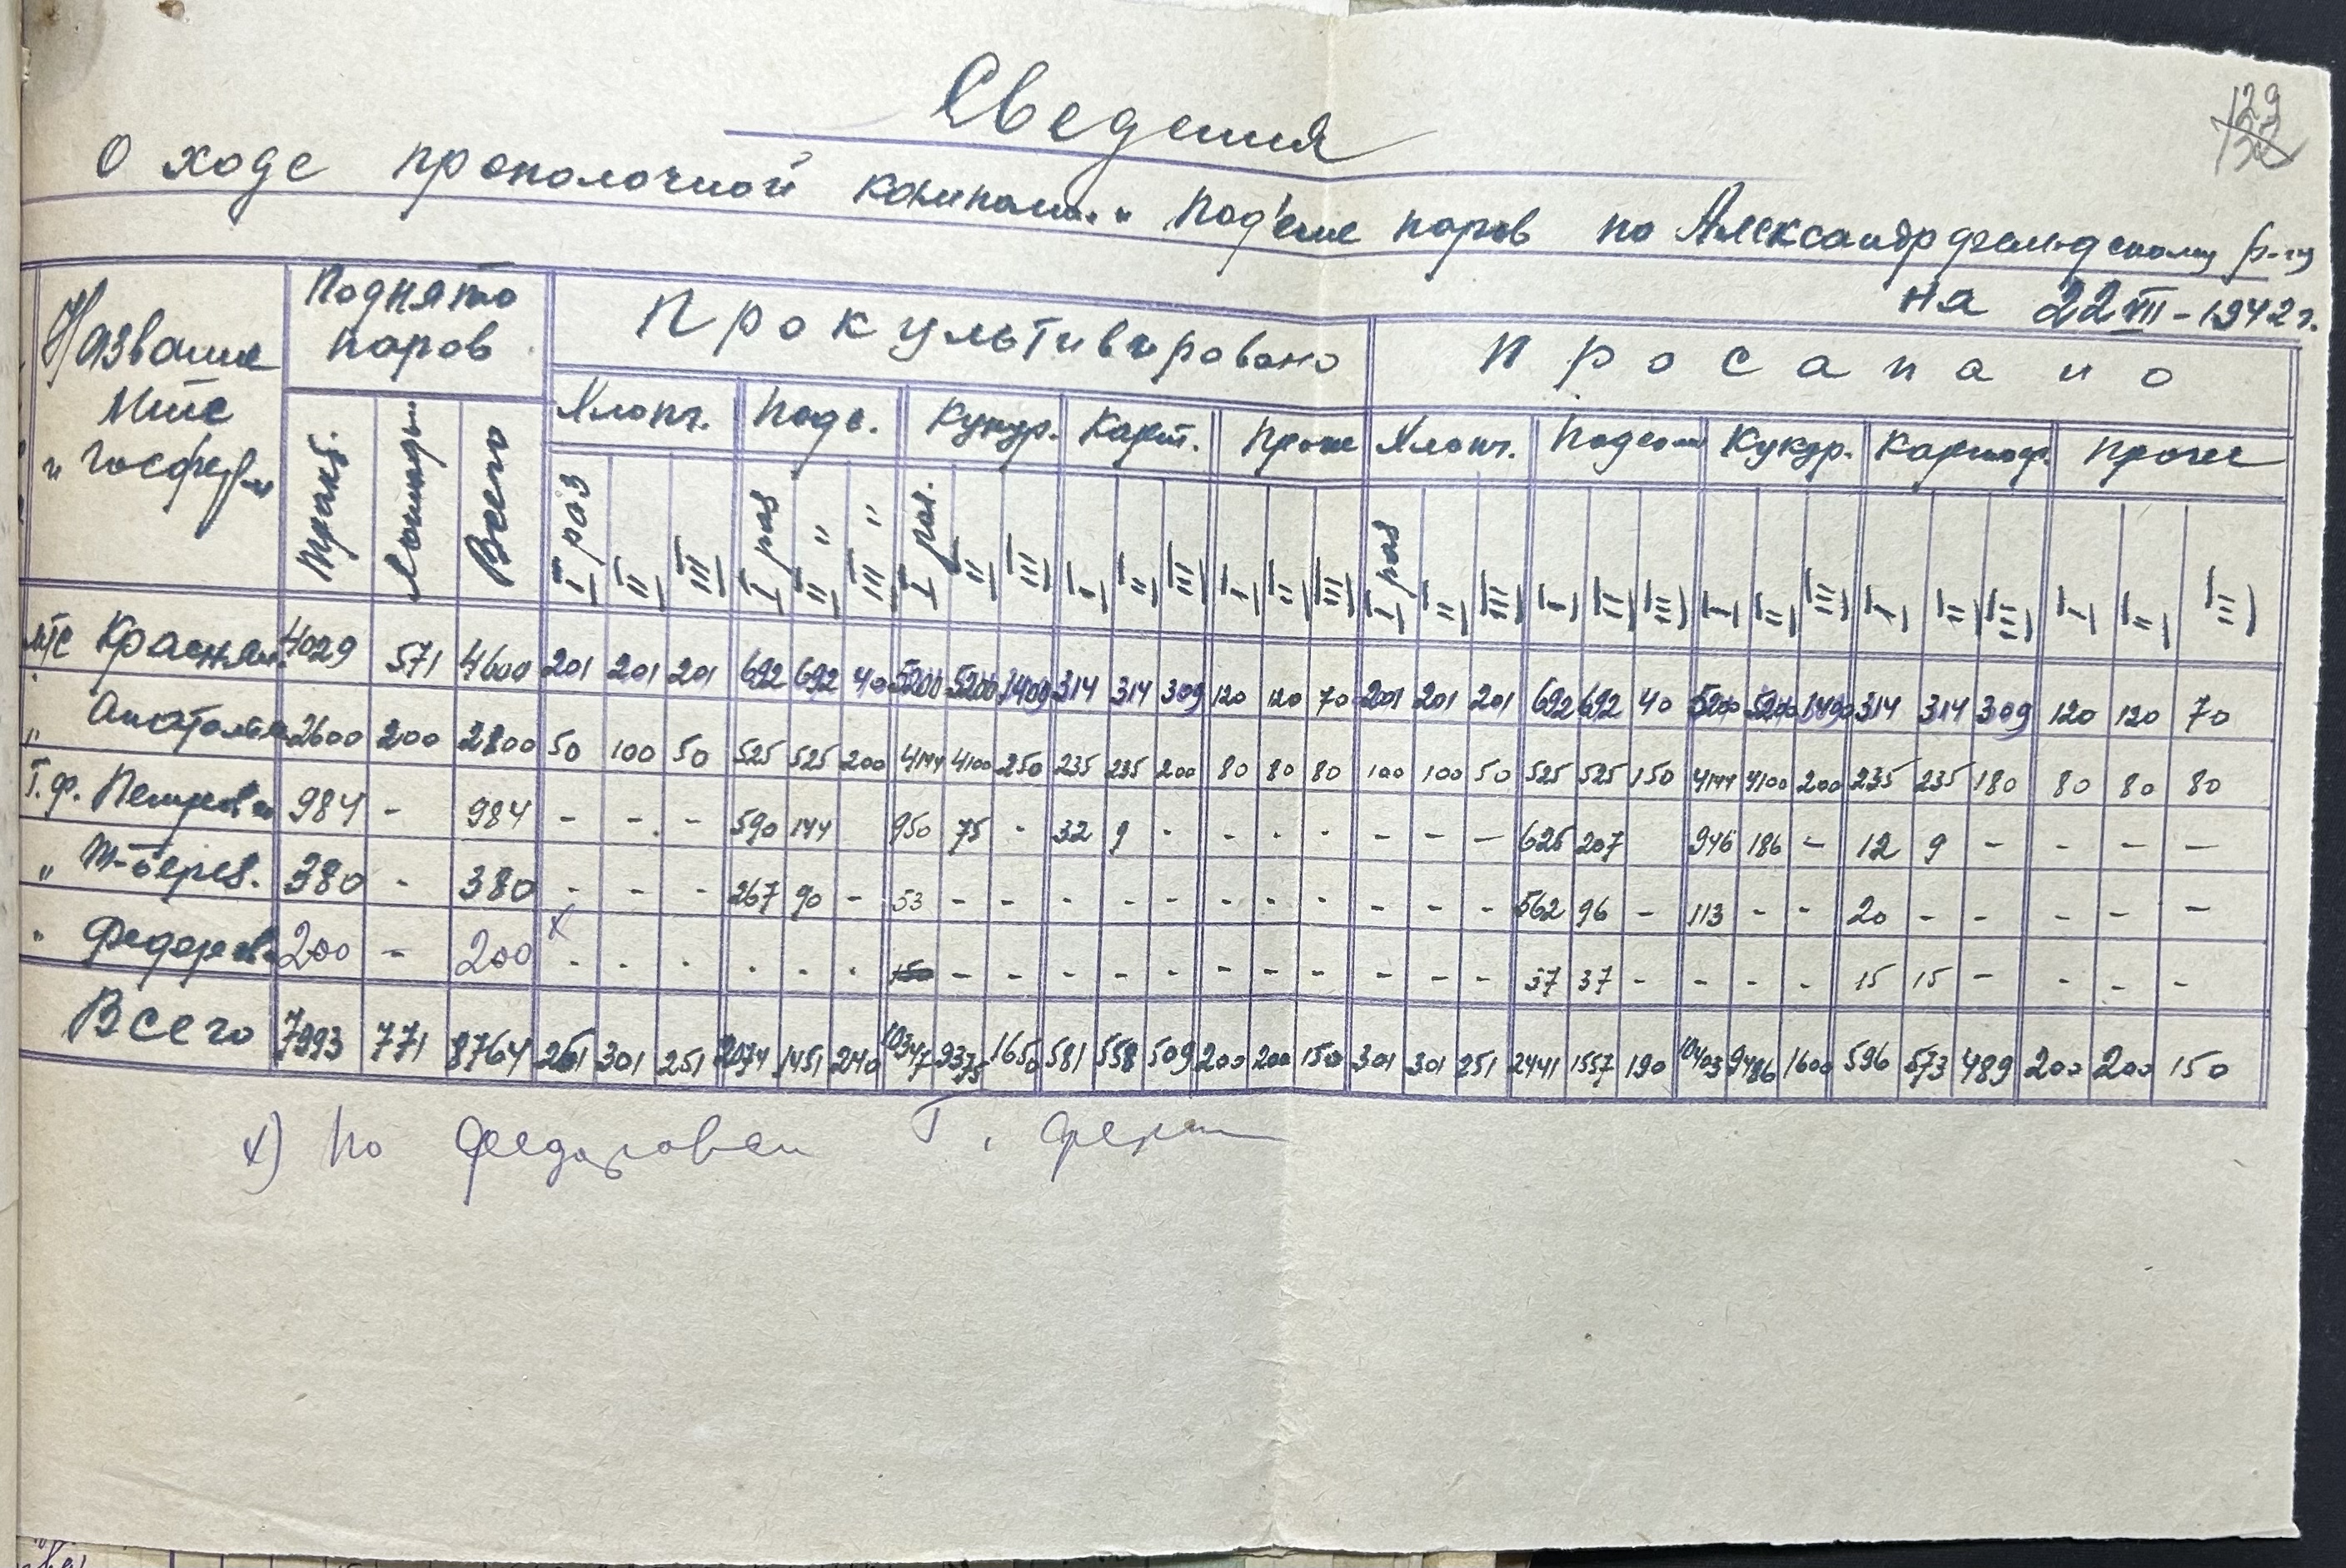 129
132
Сведения
О ходе прополочной компании и под'еме паров по Александрфельдскому р-ну
на 22 VII - 1942 г.
Название Мтс и госферм | Поднято паров | Прокультивировано | Просапано
Хлопч. | Подс. | Кукур. | Карт. | Проче | Хлопч. | Подсолн | Кукур. | Картоф. | прочее
Тракт. | Лошадьм. | Всего | I раз | II | III | I раз | II " | III " | I раз. | II | III | I | II | III | I | II | III | I раз | II | III | I | II | III | I | II | III | I | II | III | I | II | III
мтс Красням. | 4029 | 571 | 4600 | 201 | 201 | 201 | 692 | 692 | 40 | 5200 | 5200 | 1400 | 314 | 314 | 309 | 120 | 120 | 70 | 201 | 201 | 201 | 692 | 692 | 40 | 5200 | 5200 | 1400 | 314 | 314 | 309 | 120 | 120 | 70
" Анатольев | 2600 | 200 | 2800 | 50 | 100 | 50 | 525 | 525 | 200 | 4144 | 4100 | 250 | 235 | 235 | 200 | 80 | 80 | 80 | 100 | 100 | 50 | 525 | 525 | 150 | 4144 | 4100 | 200 | 235 | 235 | 180 | 80 | 80 | 80
Г.ф. Петровка | 984 | - | 984 | - | - | - | 590 | 144 | | 950 | 75 | - | 32 | 9 | - | - | - | - | - | - | - | 625 | 207 | | 946 | 186 | - | 12 | 9 | - | - | - | -
" Т-Берез. | 380 | - | 380 | - | - | - | 267 | 90 | - | 53 | - | - | - | - | - | - | - | - | - | - | - | 562 | 96 | - | 113 | - | - | 20 | - | - | - | - | -
" Федоровк. | 200 | - | 200 | х - | - | - | - | - | - | 150 | - | - | - | - | - | - | - | - | - | - | - | 37 | 37 | - | - | - | - | 15 | 15 | - | - | - | -
Всего | 7993 | 771 | 8764 | 251 | 301 | 251 | 2074 | 1451 | 240 | 10347 | 9375 | 1650 | 581 | 558 | 509 | 200 | 200 | 150 | 301 | 301 | 251 | 2441 | 1557 | 190 | 10403 | 9486 | 1600 | 596 | 573 | 489 | 200 | 200 | 150
х) По Федоровск Г. ферм